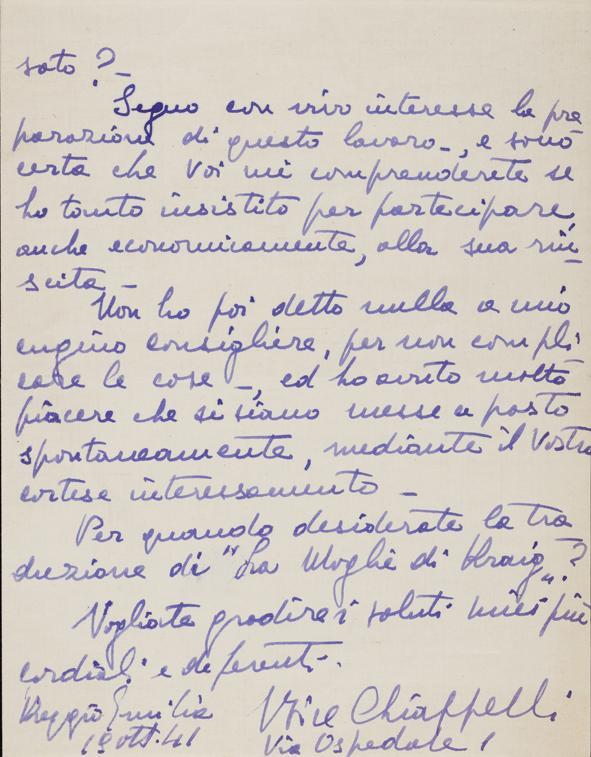 sato? -
Seguo con vivo interesse la pre
parazione di questo lavoro -, e sono
certa che Voi mi comprenderete se
ho tanto insistito per partecipare,
anche economicamente, alla sua riu-
scita -
Non ho poi detto nulla a mio
cugino consigliere, per non compli-
care le cose -, ed ho avuto molto
piacere che si siano messe a posto
spontaneamente, mediante il Vostro
cortese interessamento -
Per quando desiderate la tra
duzione di "La Moglie di Kraig"?
Vogliate gradire i saluti miei più
cordiali e deferenti -.
Reggio Emilia
19 ott. 41
Chiappelli
Via Ospedale 1